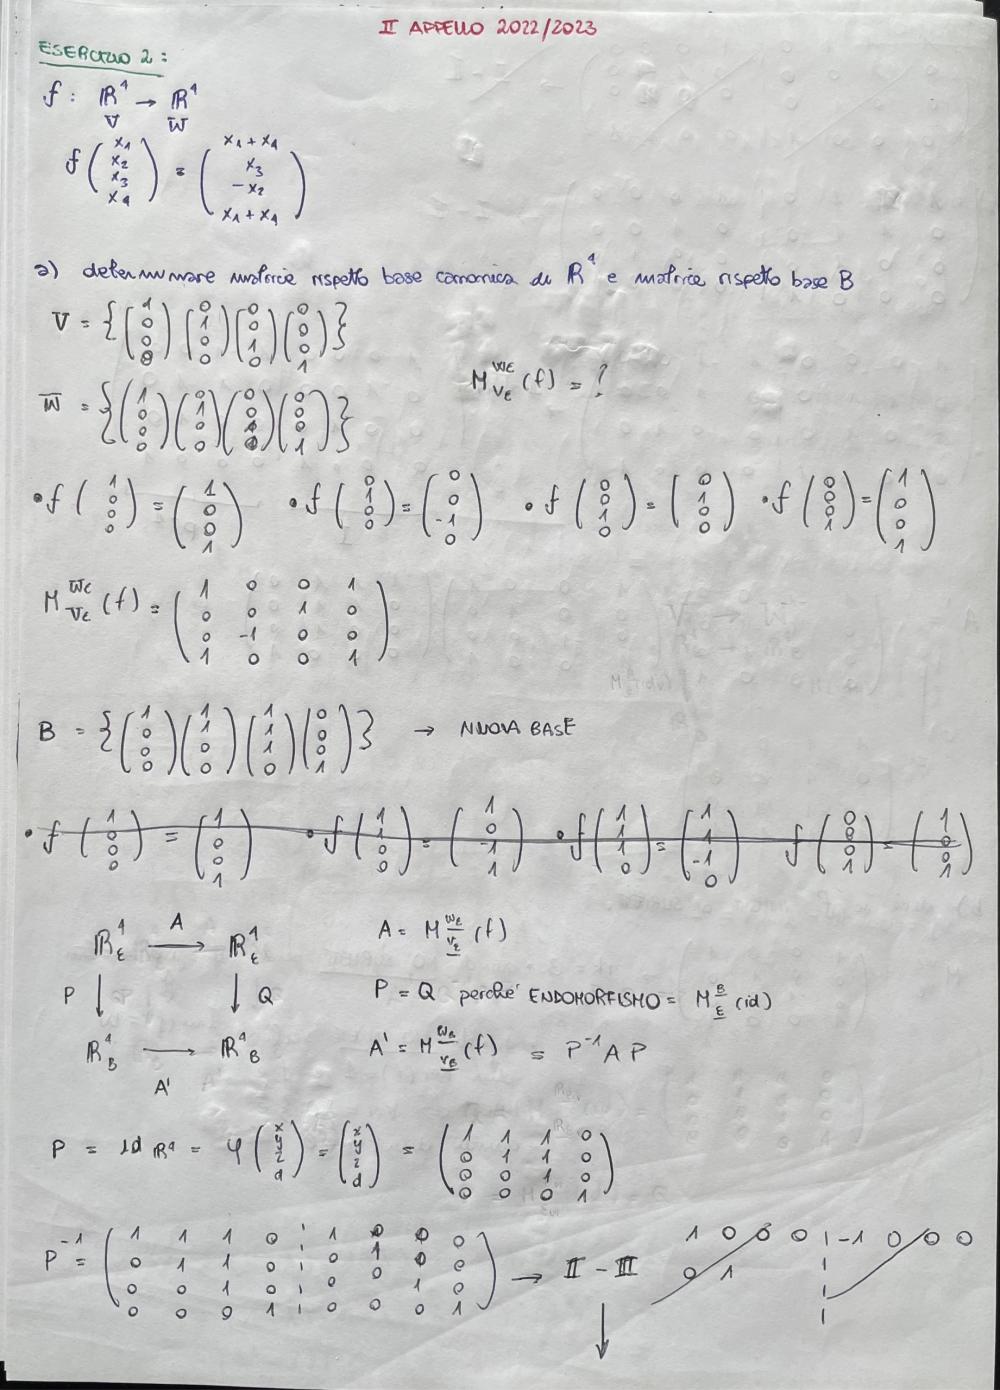 II APPELLO 2022/2023
ESERCIZIO 2:
f: ℝ⁴ → ℝ⁴
V W
f (x₁ x₂ x₃ x₄) = (x₁+x₄ x₃ -x₂ x₁+x₄)
a) determinare matrice rispetto base canonica di ℝ⁴ e matrice rispetto base B
V = {(1 0 0 0) (0 1 0 0) (0 0 1 0) (0 0 0 1)}
M^{Wε}_{Vε} (f) = ?
W = {(1 0 0 0) (0 1 0 0) (0 0 1 0) (0 0 0 1)}
• f (1 0 0 0) = (1 0 0 1) • f (0 1 0 0) = (0 0 -1 0) • f (0 0 1 0) = (0 1 0 0) • f (0 0 0 1) = (1 0 0 1)
M^{Wε}_{Vε} (f) = (1 0 0 1
0 0 1 0
0 -1 0 0
1 0 0 1)
B = {(1 0 0 0) (1 1 0 0) (1 1 1 0) (0 0 0 1)} → NUOVA BASE
• f (1 0 0 0) = (1 0 0 1) • f (1 1 0 0) = (1 0 -1 1) • f (1 1 1 0) = (1 1 -1 0) f (0 0 0 1) = (1 0 0 1)
ℝ⁴_ε A → ℝ⁴_ε A = M^{Wε}_{Vε} (f)
P ↓ ↓ Q P = Q perché ENDOMORFISMO = M^B_ε (id)
ℝ⁴_B → ℝ⁴_B A' = M^{W_B}_{V_B} (f) = P⁻¹ A P
A'
P = id ℝ⁴ = φ (x y z d) = (x y z d) = (1 1 1 0
0 1 1 0
0 0 1 0
0 0 0 1)
P⁻¹ = (1 1 1 0 ¦ 1 0 0 0
0 1 1 0 ¦ 0 1 0 0
0 0 1 0 ¦ 0 0 1 0
0 0 0 1 ¦ 0 0 0 1) → II - III
↓
1 0 0 0 ¦ -1 0 0 0
0 1